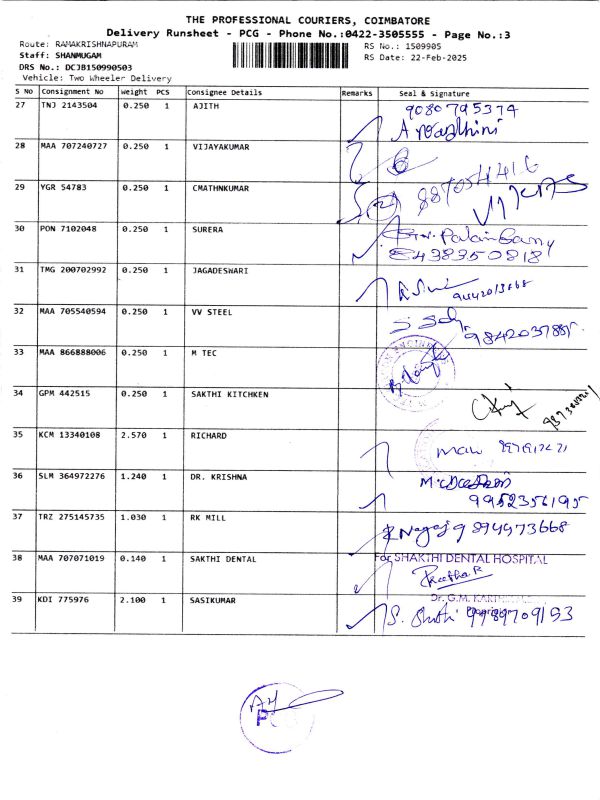 THE PROFESSIONAL COURIERS, COIMBATORE
Delivery Runsheet - PCG - Phone No.:0422-3505555 - Page No.:3
Route: RAMAKRISHNAPURAM
RS No.: 1509905
Staff: SHANMUGAM
RS Date: 22-Feb-2025
DRS No.: DCJB150990503
Vehicle: Two Wheeler Delivery
S No Consignment No Weight PCS Consignee Details Remarks Seal & Signature
27 TNJ 2143504 0.250 1 AJITH 9080795374
28 MAA 707240727 0.250 1 VIJAYAKUMAR
29 YGR 54783 0.250 1 CMATHNKUMAR
30 PON 7102048 0.250 1 SURERA
31 TMG 200702992 0.250 1 JAGADESWARI
32 MAA 705540594 0.250 1 VV STEEL
33 MAA 866888006 0.250 1 M TEC
34 GPM 442515 0.250 1 SAKTHI KITCHKEN
35 KCM 13340108 2.570 1 RICHARD
36 SLM 364972276 1.240 1 DR. KRISHNA
9952356195
37 TRZ 275145735 1.030 1 RK MILL
38 MAA 707071019 0.140 1 SAKTHI DENTAL For SHAKTHI DENTAL HOSPITAL
Preetha.R
Dr. G.M.
Proprietor
39 KDI 775976 2.100 1 SASIKUMAR 9789709153